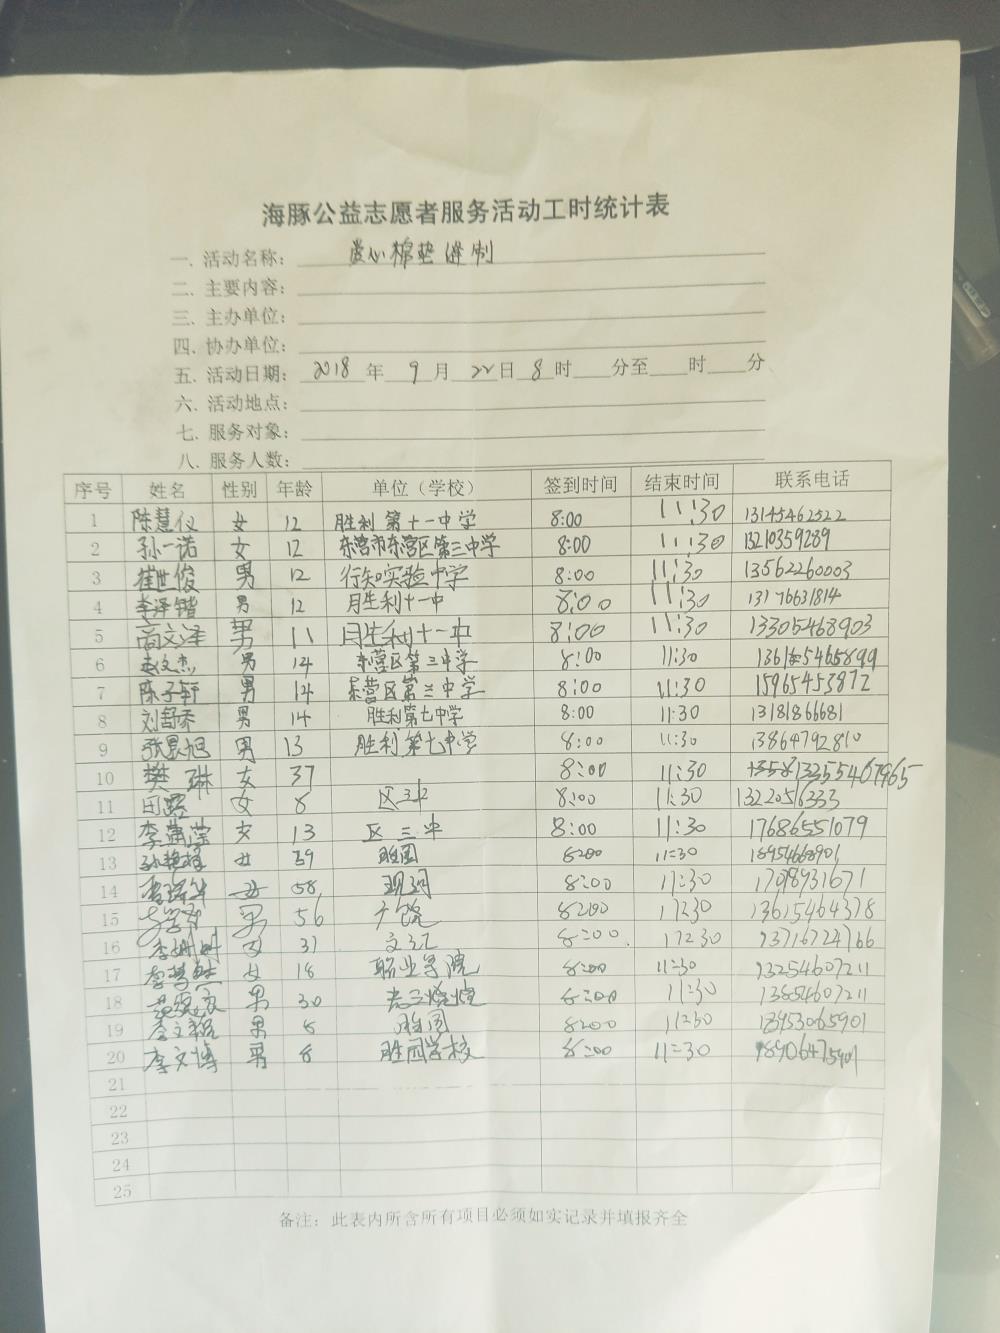 海豚公益志愿者服务活动工时统计表
一. 活动名称: 爱心棉垫缝制
二. 主要内容:
三. 主办单位:
四. 协办单位:
五. 活动日期: 2018 年 9 月 22 日 8 时 分至 时 分
六. 活动地点:
七. 服务对象:
八. 服务人数:
序号 姓名 性别 年龄 单位（学校） 签到时间 结束时间 联系电话
1 陈慧仪 女 12 胜利第十一中学 8:00 11:30 13145462522
2 孙一诺 女 12 东营市东营区第三中学 8:00 11:30 13210359289
3 崔世俊 男 12 行知实验中学 8:00 11:30 13562260003
4 李泽锴 男 12 胜利十一中 8:00 11:30 13176631814
5 高文泽 男 11 胜利十一中 8:00 11:30 13305468903
6 赵文杰 男 14 东营区第三中学 8:00 11:30
7 陈子轩 男 14 东营区第三中学 8:00 11:30 15965453872
8 刘舒乔 男 14 胜利第七中学 8:00 11:30 13181866681
9 张景旭 男 13 胜利第七中学 8:00 11:30 13864792810
10 樊琳 女 37 8:00 11:30 13255467965
11 田 女 8 区三中 8:00 11:30 13220516333
12 李 女 13 区三中 8:00 11:30 17686551079
13 孙 女 59 胜园 8:00 11:30 18954668901
14 女 58 8:00 11:30
15 男 56 8:00 11:30 13615464378
16 李 女 37 8:00 11:30
17 李 女 18 职业学院 8:00 11:30
18 男 30 8:00 11:30 13854607211
19 李文 男 8 胜园 8:00 11:30 18953065901
20 李文博 男 8 胜园学校 8:00 11:30 18906475901
21
22
23
24
25
备注: 此表内所含所有项目必须如实记录并填报齐全